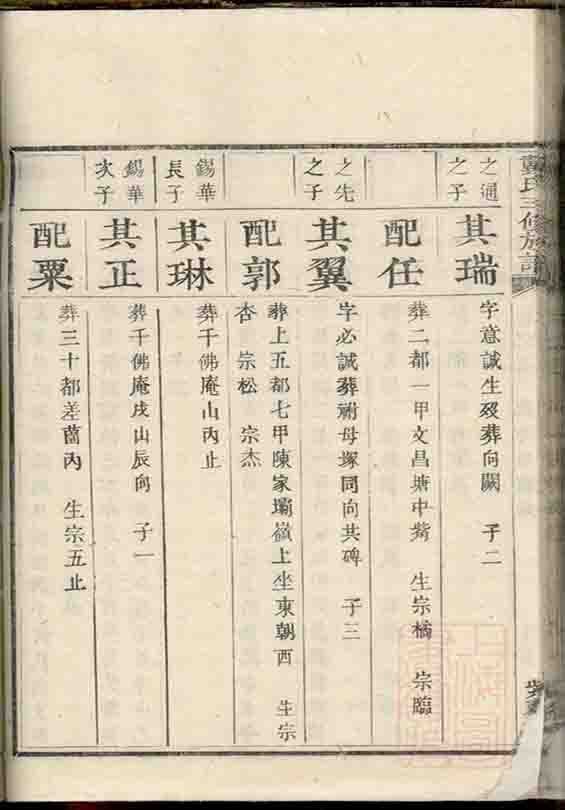 戴氏三修族譜
之通
之子
其瑞
字意誠生歿葬向闕 子二
配任
葬二都一甲文昌塘中嘴 生宗橘 宗臨
之先
之子
其翼
字必誠葬祔母塚同向共碑 子三
配郭
葬上五都七甲陳家壩嶺上坐東朝西 生宗
杏 宗松 宗杰
錫華
長子
其琳
葬千佛庵山內止
錫華
次子
其正
葬千佛庵戌山辰向 子一
配粟
葬三十都差𦰡內 生宗五止